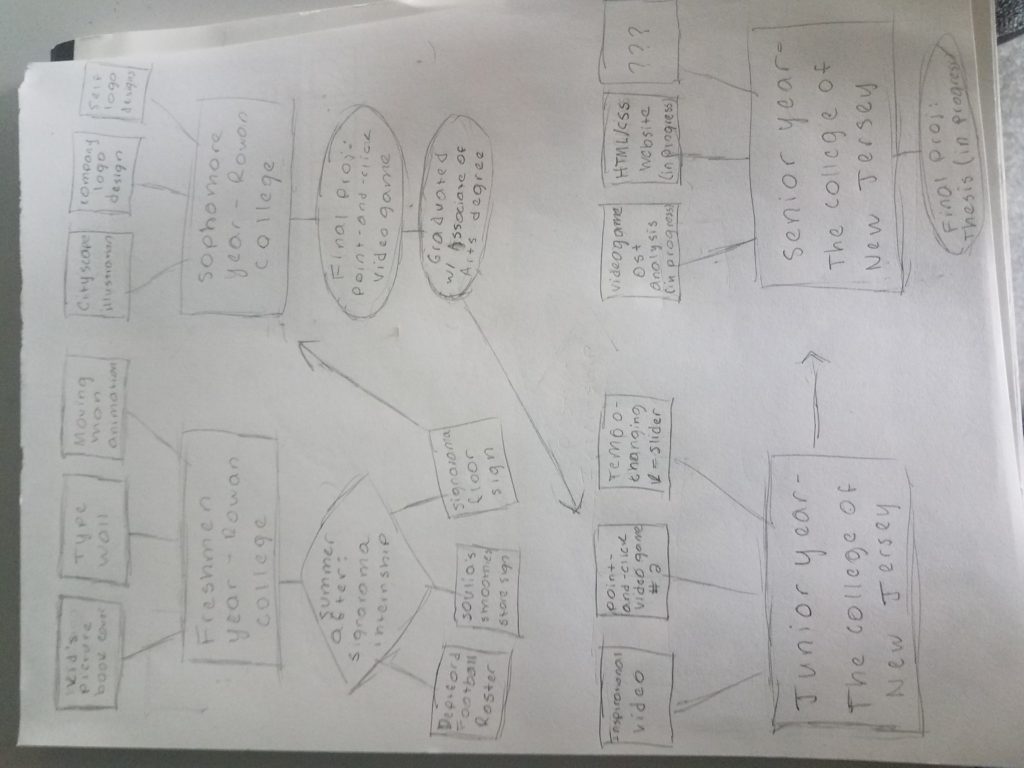 Kid's
picture
book cover
Type
Wall
Moving
man
animation
Freshmen
year - Rowan
college
summer
after:
signarama
internship
Deptford
Football
Roster
smokes
store sign
signarama
floor
sign
Cityscape
illusion
company
logo
design
Self
logo
designs
Sophomore
year - Rowan
college
Final proj:
point-and-click
Video game
Graduated
w/ Associate of
Arts degree
Inspirational
video
point-
and-click
video game
#2
Tempo-
changing
slider
Junior year-
The college of
New Jersey
videogame
ost
analysis
(in progress)
HTML/CSS
Website
(in progress)
???
Senior year-
The college of
New Jersey
Final proj:
Thesis (in progress)